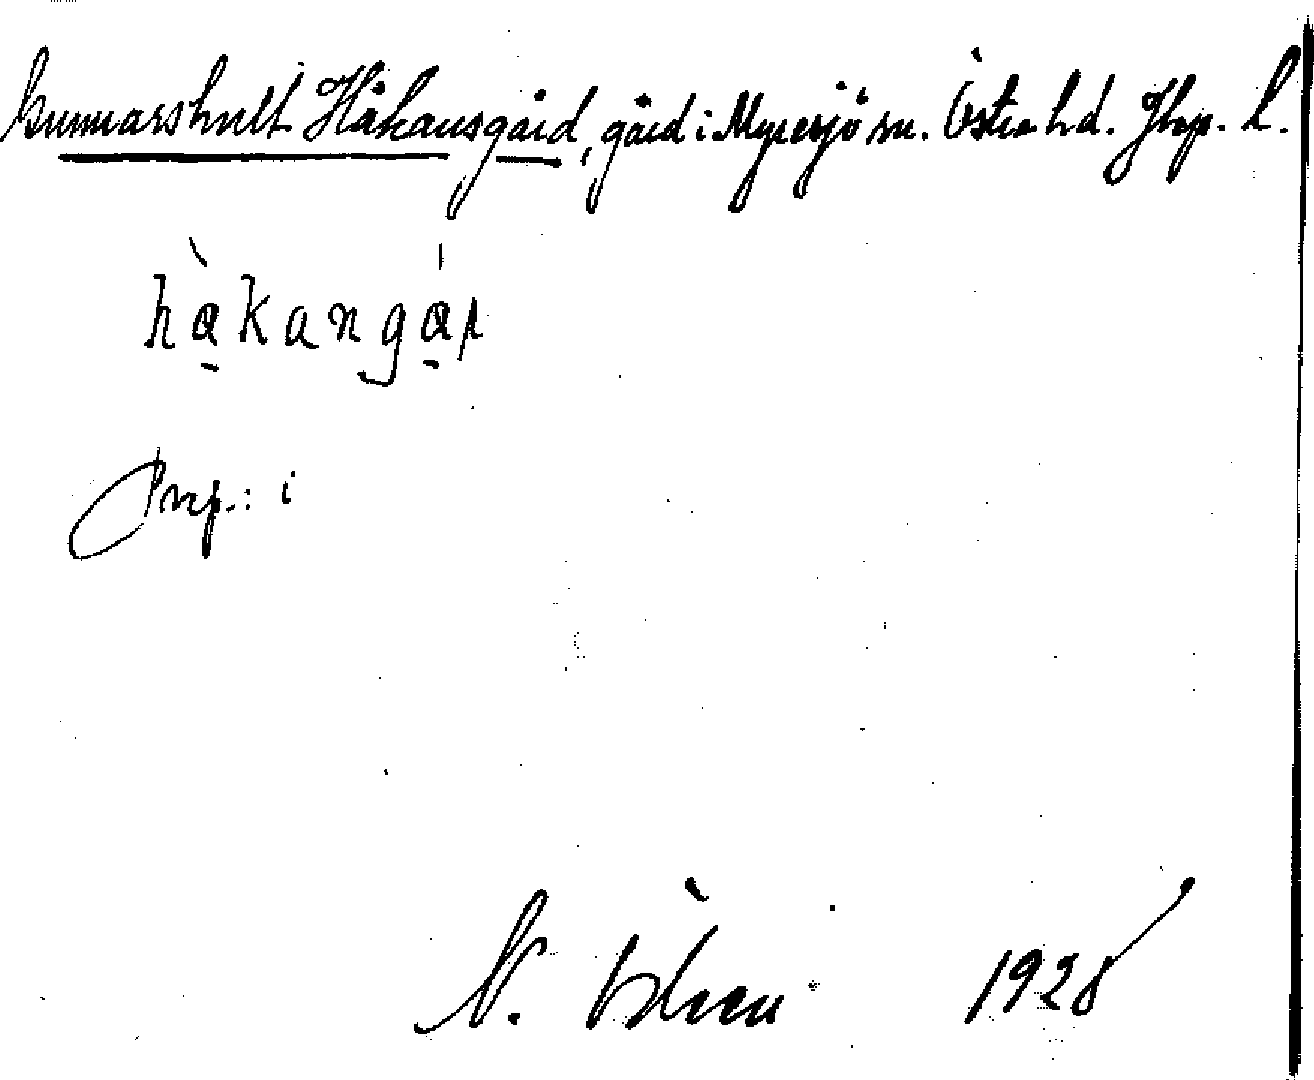 Gunnarshult Håkansgård, gård i Myresjö sn. Östra hd. Jkp. l.
hà̱kangá̱r
Prep.: i
N. Ödeen 1928